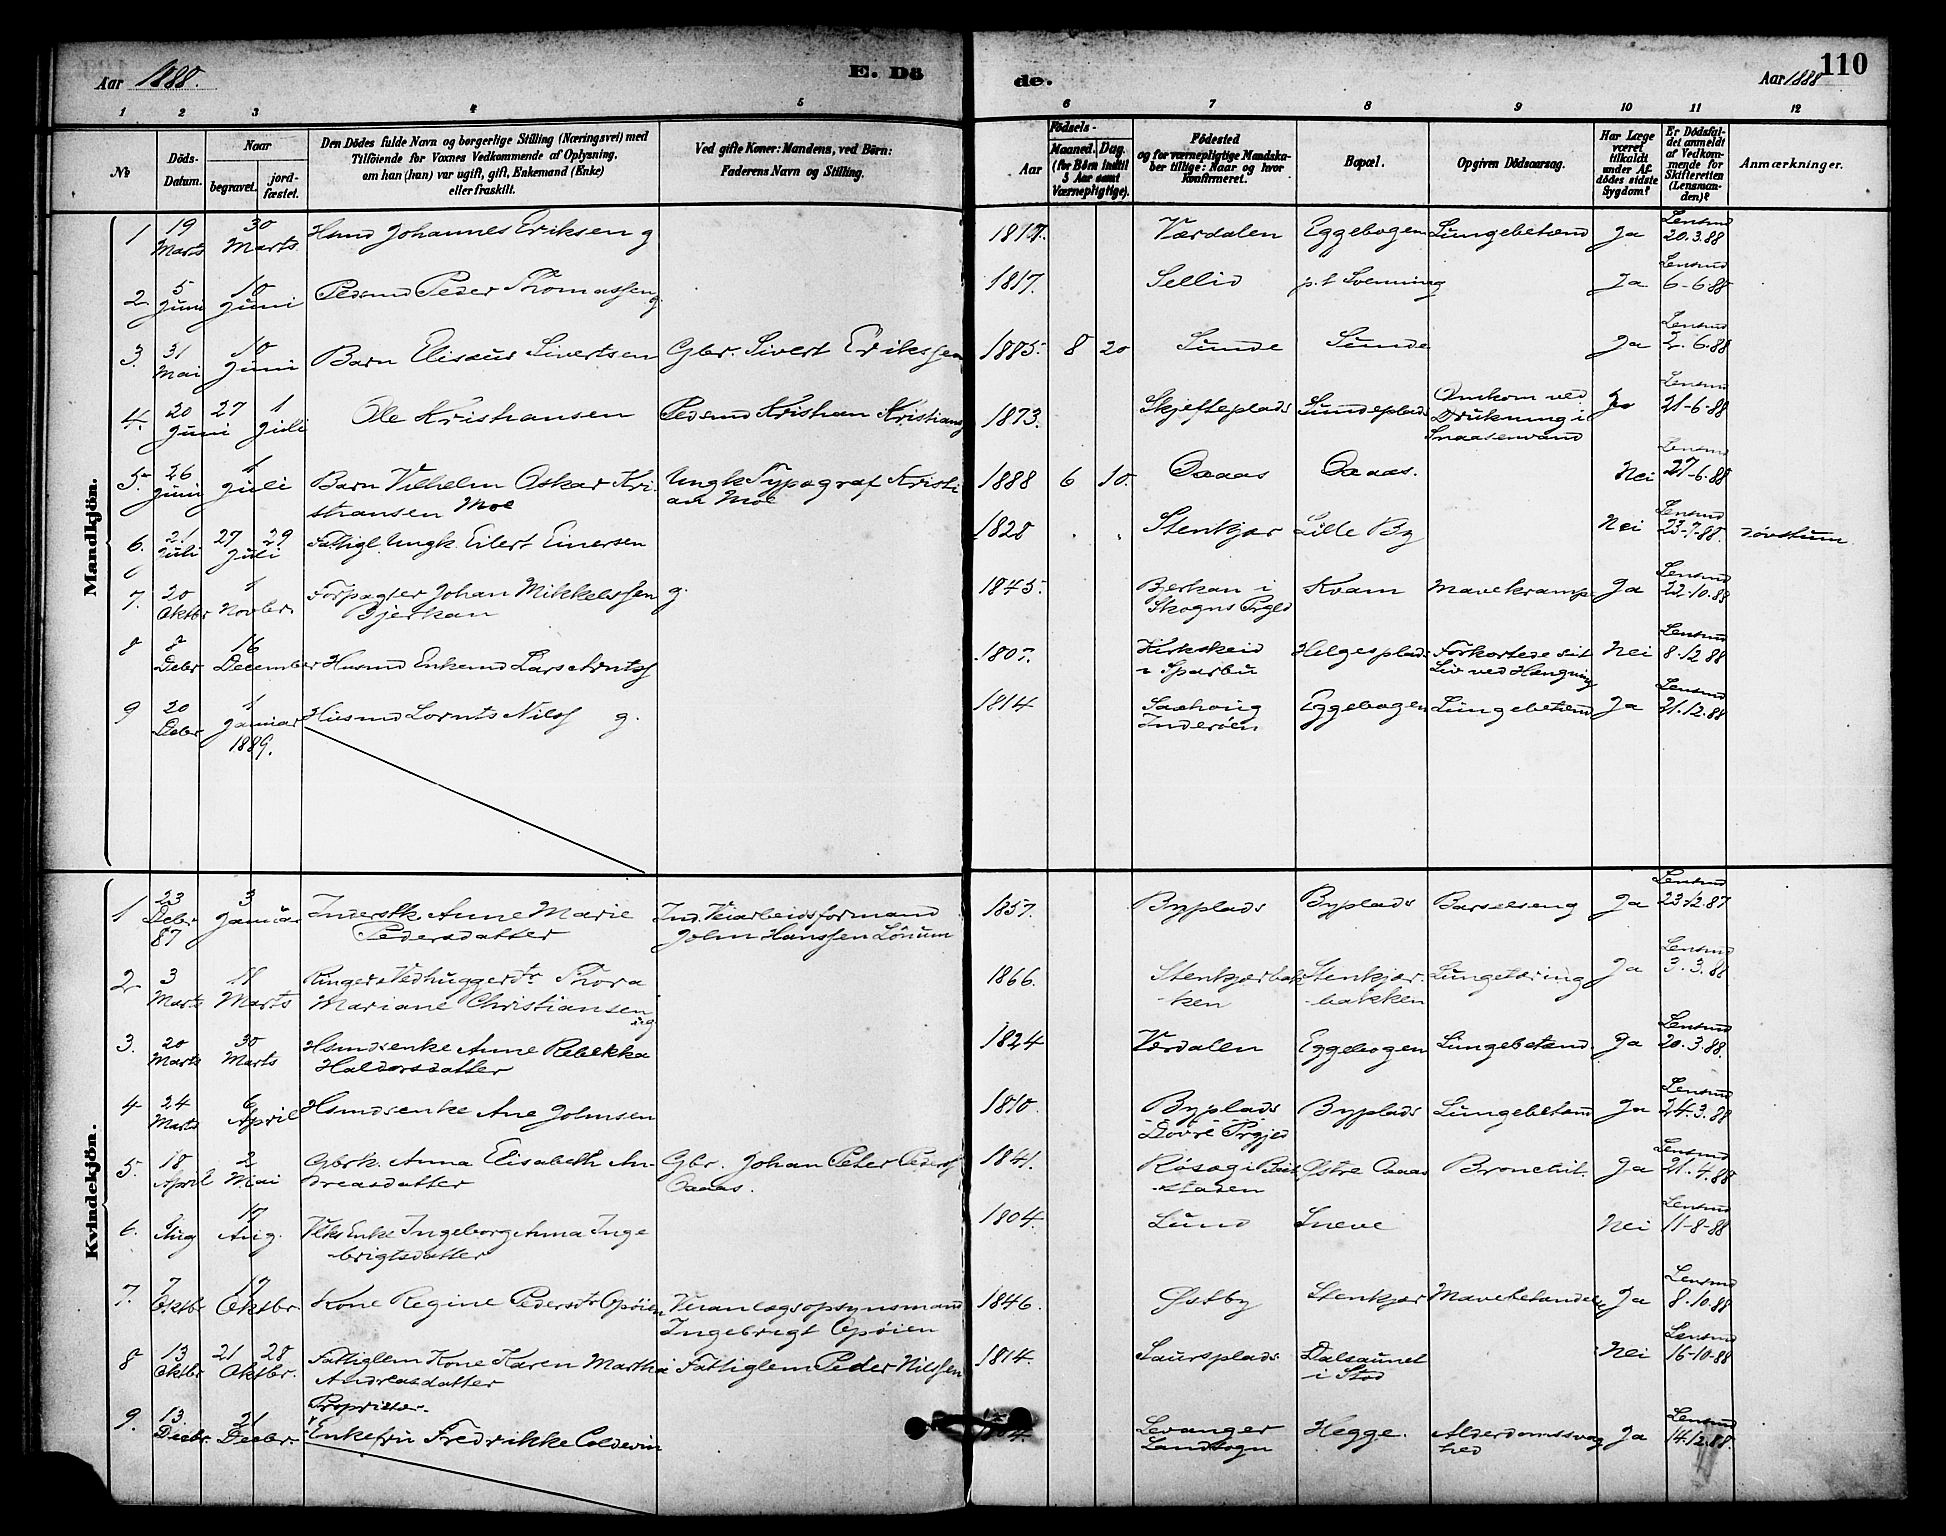 Aar 1888.
E. Dö
de.
Aar 1888
110
1 2 3 4 5 6 7 8 9 10 11 12
No
Döds-Datum.
Naar
begravet.
jord-fæstet.
Den Dödes fulde Navn og borgerlige Stilling (Næringsvei) med
Tilföiende for Voxnes Vedkommende af Oplysning,
om han (hun) var ugift, gift, Enkemand (Enke)
eller fraskilt.
Ved gifte Koner: Mandens, ved Börn:
Faderens Navn og Stilling.
Födsels-
Aar
Maaned. Dag.
(for Börn indtil
5 Aar samt
Værnepligtige).
Födested
og for værnepligtige Mandska-
ber tillige: Naar og hvor
Konfirmeret.
Bopæl.
Opgiven Dödsaarsag.
Har Læge
været
tilkaldt
under Af-
dödes sidste
Sygdom?
Er Dödsfal-
det anmeldt
af Vedkom-
mende for
Skifteretten
(Lensman-
den)?
Anmærkninger.
Mandkjön.
1 19 Marts 30 Marts Hsmd Johannes Eriksen g 1817. Værdalen Eggebogen Lungebetænd Ja Lensmd 20.3.88
2 5 Juni 10 Juni Pedsmd Peder Thomassen g. 1817. Sellid p.t Svenning Ja Lensmd 6-6-88
3. 31 Mai 10 Juni Barn Elisæus Sivertsen Gbr. Sivert Erikssen 1885. 8 20 Sunde Sunde Ja Lensmd 2.6.88
4. 20 Juni 27 1 Juli Ole Kristiansen Pedsmd Kristian Kristians 1873. Skjefteplads Sundeplads Omkom ved
Drukning i
Snaasenvand Lensmd 21-6-88
5. 26 Juni 1 Juli Barn Vilhelm Oskar Kri-
stiansen Moe Ungk Typograf Kristi
an Moe 1888 6 10. Oaaas Oaaas. Nei Lensmd 27-6-88
6. 21 Juli 27 29 Juli Fattigl. Ungk. Eilert Einersen 1828 Stenkjær Lille By Nei Lensmd 23-7-88. Døvstum.
7. 20 Oktbr 1 Novbr. Forpagter Johan Mikkelssen g.
Bjerkan 1845. Bjerkan i
Skogns Prgld Kvam Mavekrampe Ja Lensmd 22.10.88
8 8 Debr 16 December Husmd Enkemd Lars Arntss 1807. Kirkskeid
i Sparbu Helgesplads Forkortede sit
Liv ved Hængning Nei Lensmd 8.12 88
9 20 Debr 1 Januar
1889. Husmd Lornts Nilss g. 1814 Saxhoug
Inderøen Eggebogen Lungebetænd Ja Lensmd 21.12.88
Kvindekjön.
1 23 Debr 87 3 Januar Inderstk Anne Marie
Pedersdatter Ind. Veiarbeidsformand
John Hanssen Lönum 1857. Byplads Byplads Barselseng Ja Lensmd 23-12.87
2 3 Marts 18 Marts Ringer & Vedhuggerdtr Thora
Mariane Christiansen
ug 1866. Stenkjærbak-
ken Stenkjær-
bakken Lungetæring Ja Lensmd 3.3.88
3. 20 Marts 30 Marts Hsmdsenke Anne Rebekka
Haldorsdatter 1824 Værdalen Eggebogen Lungebetænd Ja Lensmd 20.3.88.
4 24 Marts 6 April Hsmdsenke Ane Johnsen 1810. Byplads
Dovre Prgjed Byplads Lungebetænd Ja Lensmd 24.3.88
5. 18 April 2 Mai Gbrk. Anna Elisabeth An-
dreasdatter Gbr. Johan Peter Pederss
Oaaas. 1841. Røsæg i Beit
staden Østre Oaaas Bronchit. Ja Lensmd 21.4.88
6. Aug 17 Aug. Enke Ingeborg Anna Inge
brigtsdatter 1804. Lund Sneve Nei Lensmd 11-8-88
7. 7 Oktbr 17 Oktbr. Kone Regine Pedersdtr Opöien Veranlægsopsynsmand
Ingebrigt Opöien 1846. Østby Stenkjær Mavebetændelse Ja Lensmd 8.10.88
8 13 Oktbr 21 28 Oktbr. Fattiglem Kone Karen Martha
Andreasdatter Fattiglem Peder Nilssen 1814. Saursplads Dalsaunet
i Stod Nei Lensmd 16-10-88
9. 13. Decbr. 21 Decbr. Proprieter.
Enkefru Fredrikke Coldevin Levanger
Landsogn Hegge. Alderdomssvag
hed Ja Lensmd 14.12.88.